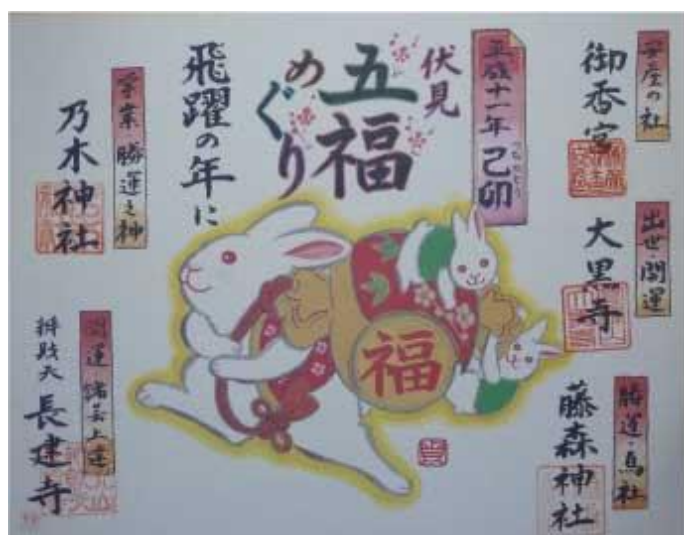 安産の社
御香宮
出世・開運
大黒寺
勝運・馬社
藤森神社
平成十一年 己卯
つちのとう
伏見
五福
めぐり
飛躍の年に
福
学業・勝運之神
乃木神社
開運 諸芸上達
辨財天
長建寺